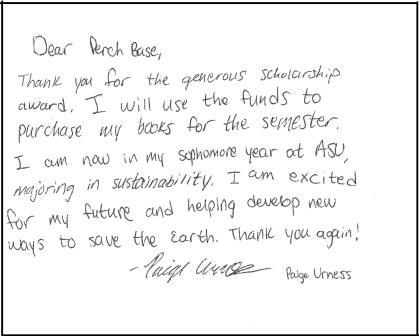 Dear Perch Base,
Thank you for the generous scholarship
award. I will use the funds to
purchase my books for the semester.
I am now in my sophomore year at ASU,
majoring in sustainability. I am excited
for my future and helping develop new
ways to save the Earth. Thank you again!
- Paige Urness Paige Urness